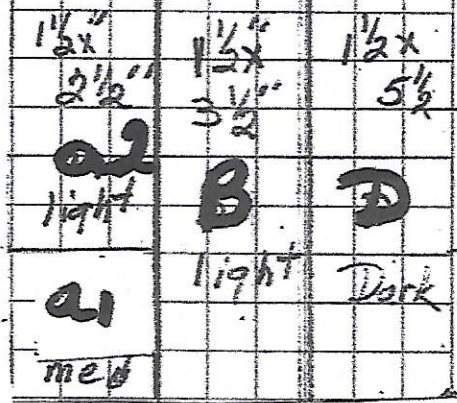 1 1/2 x"
2 1/2"
a2
light
a1
med
1 1/2 x"
3 1/2"
B
light
1 1/2 x
5 1/2
D
Dark